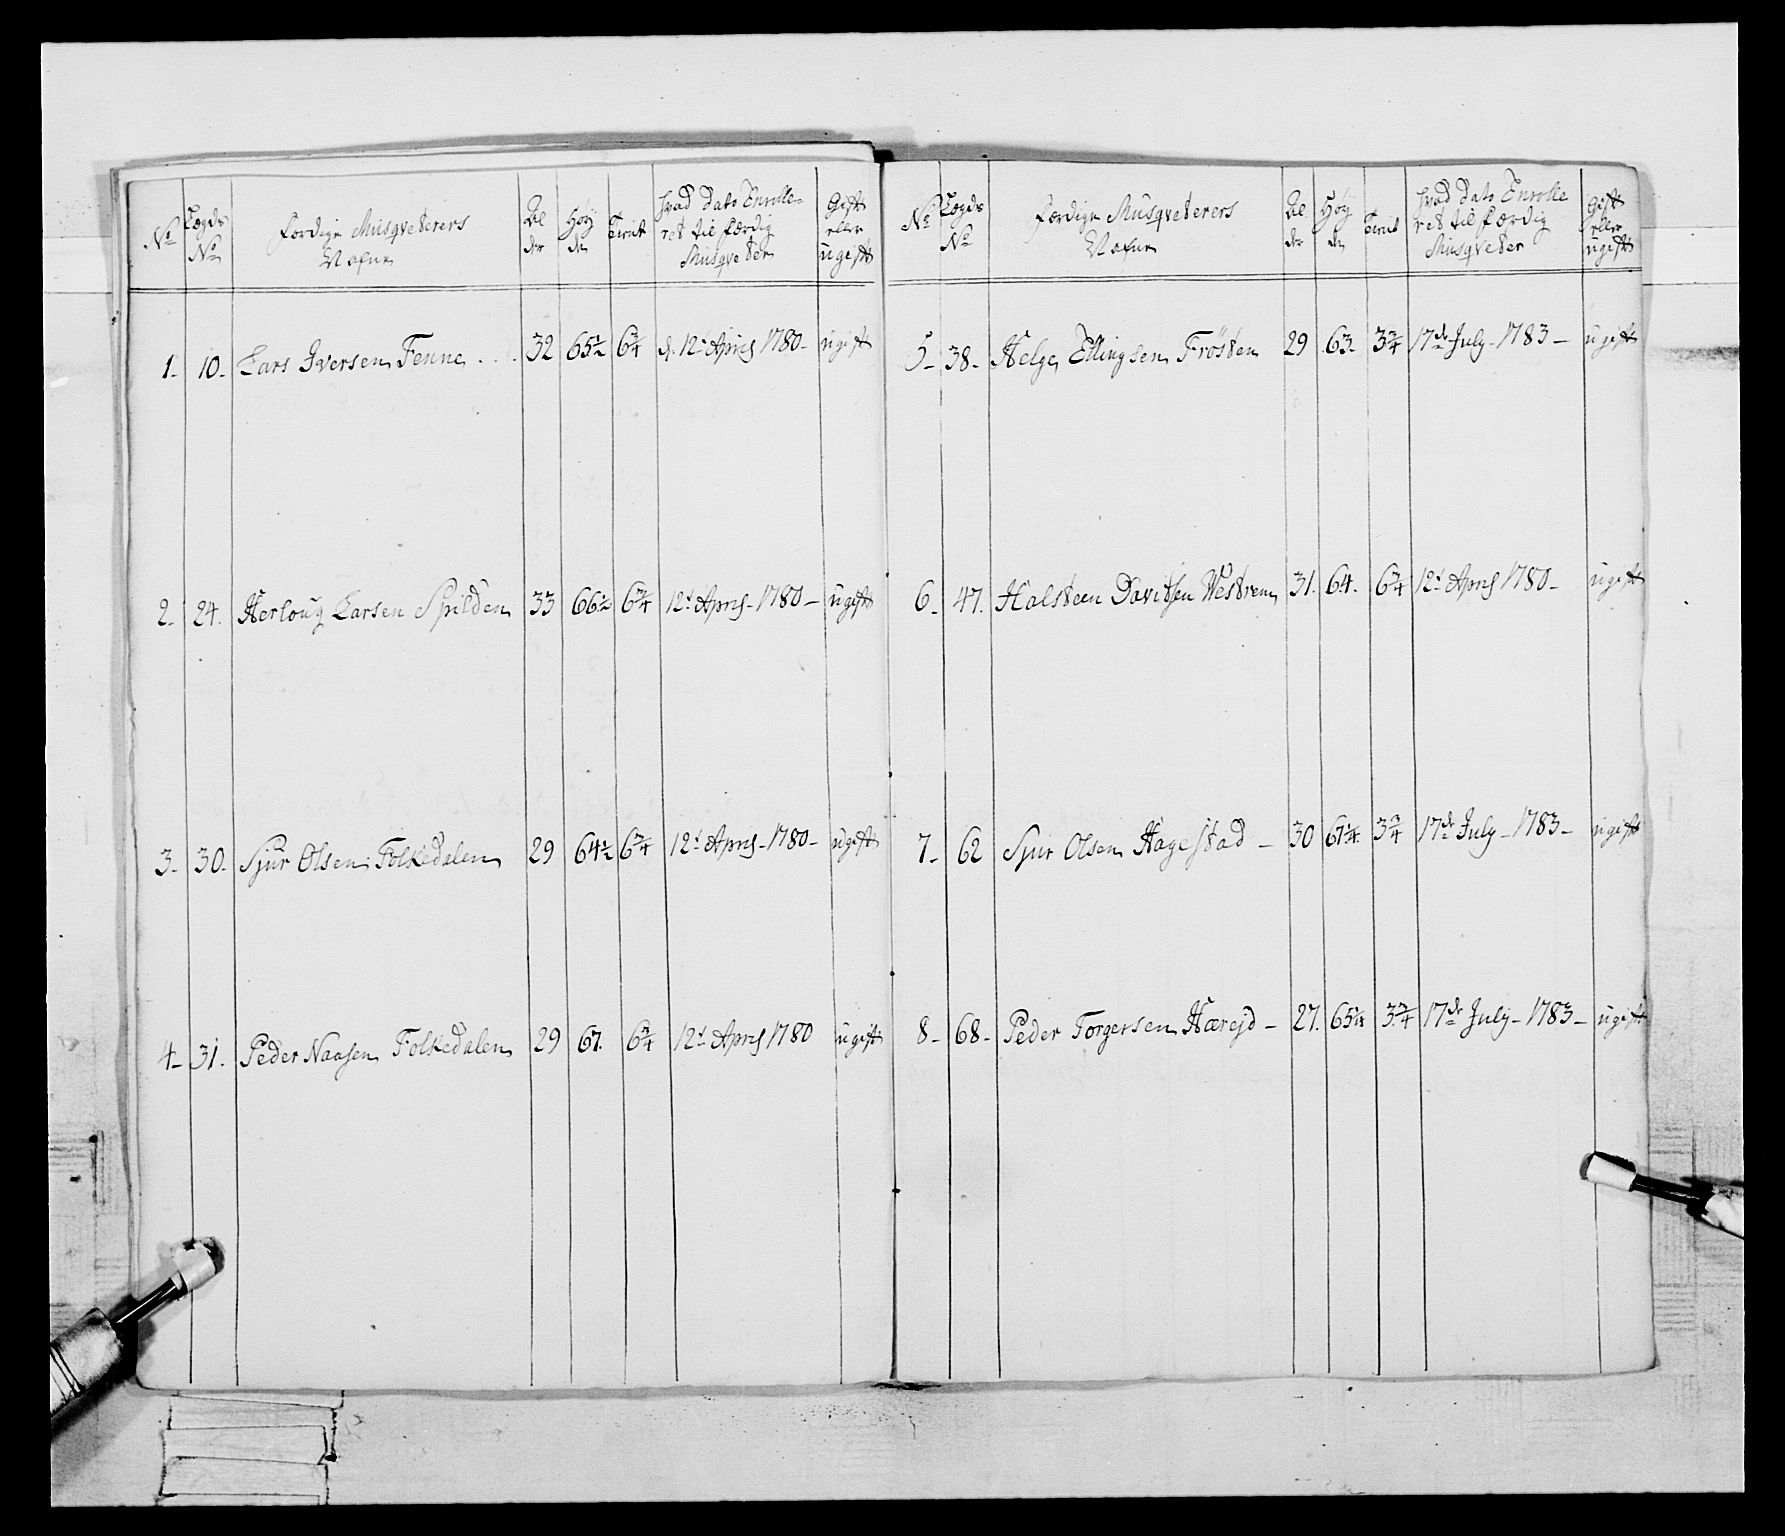 No
Lægds No
Færdige Musqveterers Nafne
Alder
Høyden
Tient
hvad dato Enrolleret til færdig Musqveter
Gift eller ugift
1- 10- Lars Iversen Fenne . . . 32 65½ 6¾ d. 12t April 1780- ugift
2- 24. Herloug Larsen Spilden 33 66½ 6¾ 12t April- 1780- ugift
3- 30- Sjur Olsen Folkedalen 29 64½ 6¾ 12t April- 1780- ugift
4- 31- Peder Naasen Folkedalen 29 67. 6¾ 12t April 1780 ugift
No
Lægds No
Færdige Musqveterers Nafne
Alder
Høyden
Tient
hvad dato Enrolleret til færdig Musqveter
Gift eller ugift
5- 38- Helge Ellingsen Frösten 29 63- 3¾ 17de July- 1783- ugift
6- 47. Halsteen Davitsen Westrem 31. 64. 6¾ 12t April 1780- ugift
7- 62 Sjur Olsen Hagestad - 30 67¼. 3¾ 17de July- 1783- ugift
8- 68- Peder Torgersen Hærejd - 27. 65¼ 3¾ 17de July- 1783- ugift